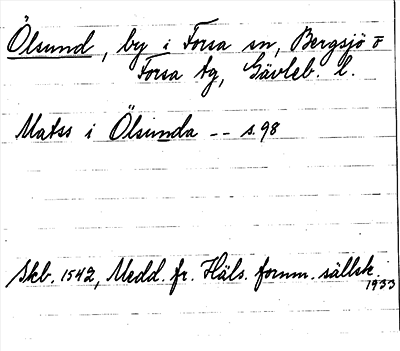 Ölsund, by i Forsa sn, Bergsjö o
Forsa tg, Gävleb. l.
Matss i Ölsunda -- s. 98
Skb. 1542, Medd. fr. Häls. fornm. sällsk.
1933